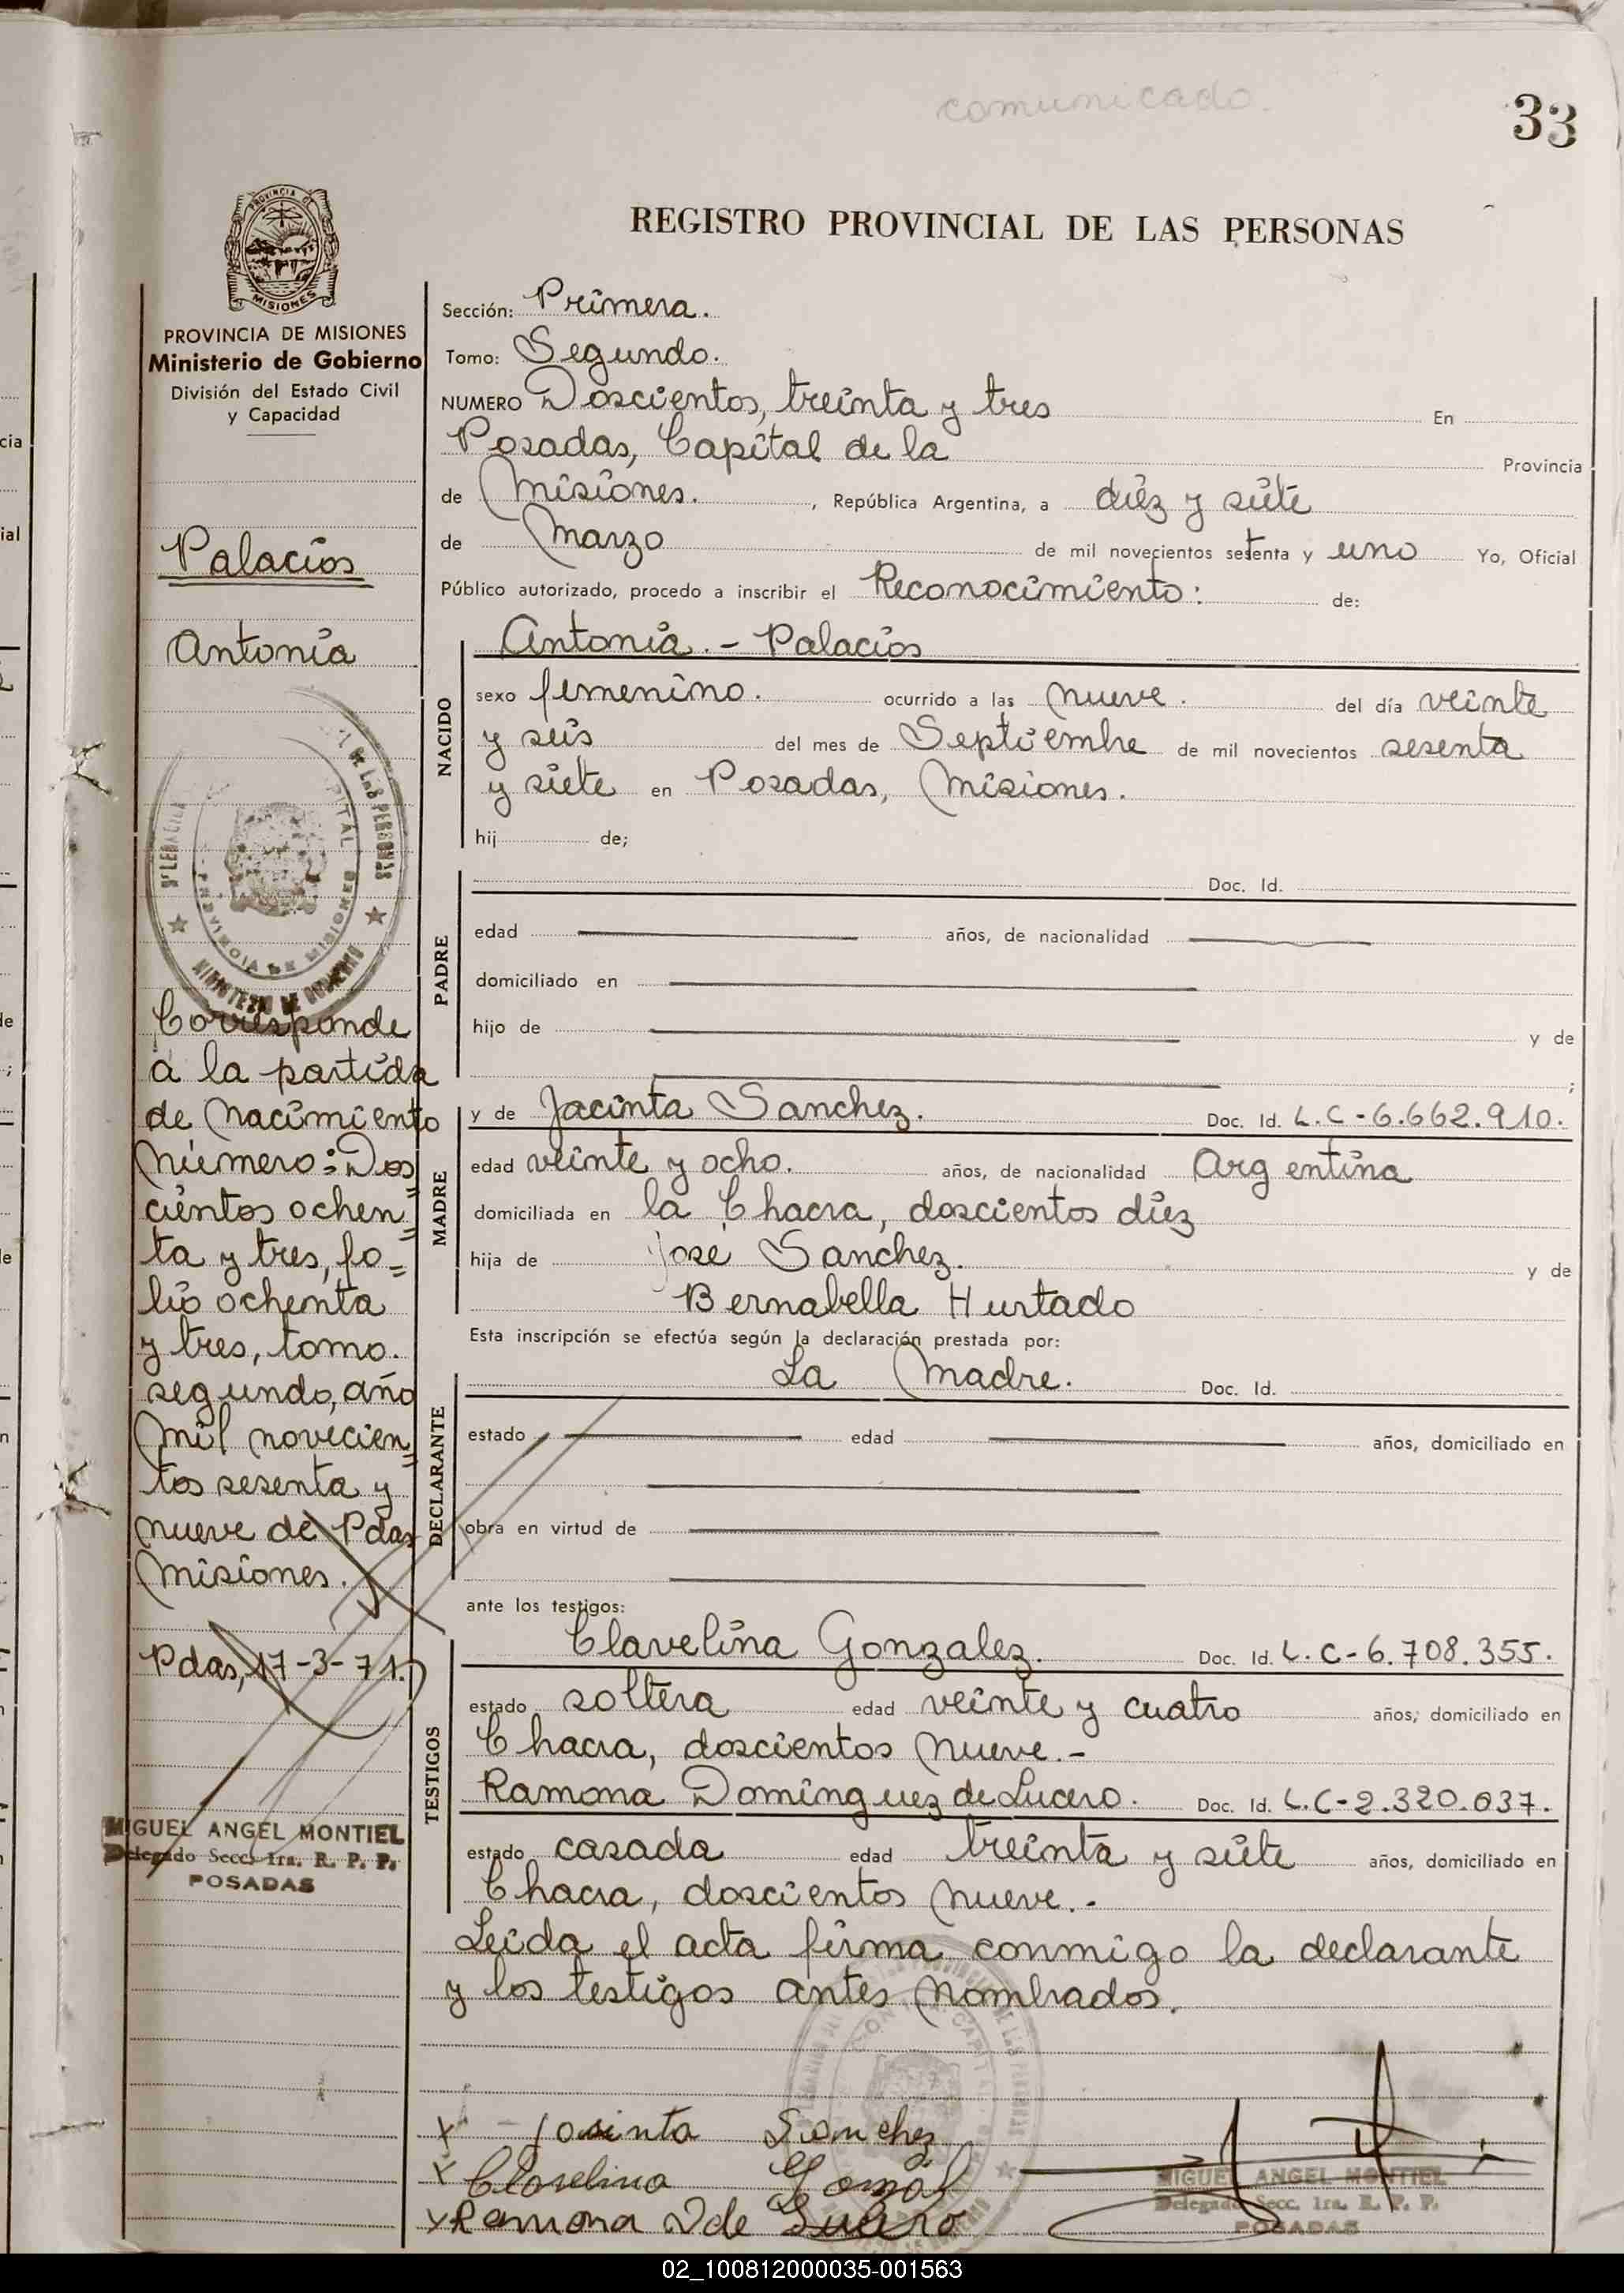 comunicado.
33
REGISTRO PROVINCIAL DE LAS PERSONAS
PROVINCIA DE MISIONES
Ministerio de Gobierno
División del Estado Civil
y Capacidad
Palacios
Antonia
Corresponde
a la partida
de nacimiento
número: Dos
cientos ochen=
ta y tres, fo=
lio ochenta
y tres, tomo.
segundo, año
mil novecien=
tos sesenta y
nueve de Pdas
Misiones.
Pdas, 17-3-71.
MIGUEL ANGEL MONTIEL
Delegado Secc. 1ra. R. P. P.
POSADAS
Sección: Primera.
Tomo: Segundo.
NUMERO Doscientos, treinta y tres En
Posadas, Capital de la Provincia
de Misiones. , República Argentina, a diez y siete
de Marzo de mil novecientos setenta y uno Yo, Oficial
Público autorizado, procedo a inscribir el Reconocimiento: de:
NACIDO
Antonia. - Palacios
sexo femenino. ocurrido a las nueve. del día veinte
y seis del mes de Septiembre de mil novecientos sesenta
y siete en Posadas, Misiones.
hij de;
PADRE
Doc. Id.
edad años, de nacionalidad
domiciliado en
hijo de y de
;
MADRE
y de Jacinta Sanchez. Doc. Id. L.C-6.662.910.
edad veinte y ocho. años, de nacionalidad Argentina
domiciliada en la Chacra, doscientos diez
hija de José Sanchez. y de
Bernabella Hurtado
Esta inscripción se efectúa según la declaración prestada por:
DECLARANTE
La Madre. Doc. Id.
estado edad años, domiciliado en
obra en virtud de
ante los testigos:
TESTIGOS
Clavelina Gonzalez. Doc. Id. L.C-6.708.355.
estado soltera edad veinte y cuatro años, domiciliado en
Chacra, doscientos nueve.-
Ramona Dominguez de Lucero. Doc. Id. L.C-2.320.037.
estado casada edad treinta y siete años, domiciliado en
Chacra, doscientos nueve.-
Leida el acta firma conmigo la declarante
y los testigos antes nombrados.
x Josinta Sanchez
x Clavelina
x Ramona D de Lucero
MIGUEL ANGEL MONTIEL
Delegado Secc. 1ra. R. P. P.
POSADAS
02_100812000035-001563